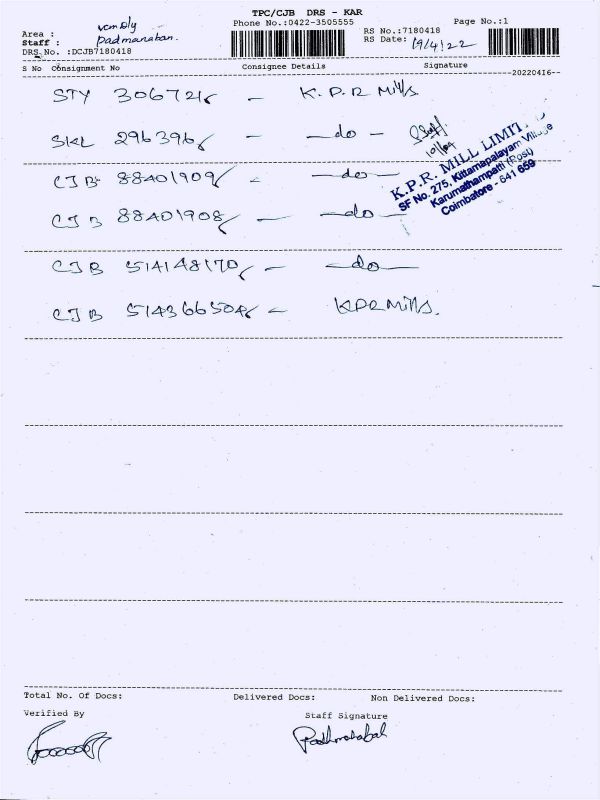 TPC/CJB DRS - KAR
Phone No.:0422-3505555
Page No.:1
Area :
Staff : Padmanaban.
DRS No. :DCJB7180418
RS No.:7180418
RS Date: 19/4/22
S No Consignment No Consignee Details Signature
--20220416--
STY 306721 - K.P.R Mills
SKL 296396 - - do -
CJB 88401909 - - do -
CJB 88401908 - - do -
CJB 514148170 - - do -
CJB 514366504 - KPR Mills.
K.P.R. MILL LIMIT
SF No. 275, Kittampalayam Village
Karumathampatti (Post)
Coimbatore - 641 659
Total No. Of Docs: Delivered Docs: Non Delivered Docs:
Verified By
Staff Signature